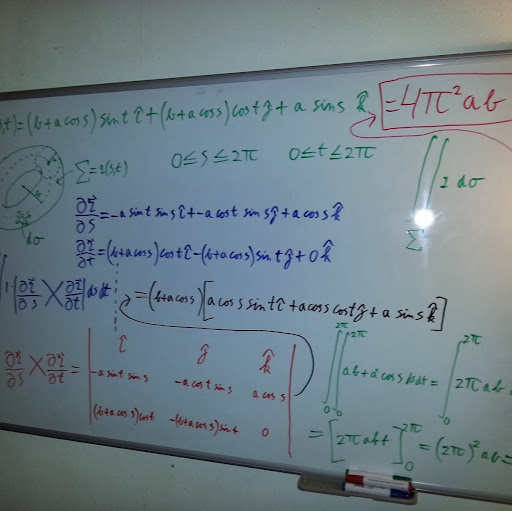 s,t)=(b+a cos s) sint î+(b+a cos s) cost ĵ+ a sin s k̂
=4π²ab
Σ=r(s,t)
0≤s≤2π 0≤t≤2π
dσ
∬ 1 dσ
Σ
∂r⃗/∂s =-a sint sins î+-a cost sins ĵ+a cos s k̂
∂r⃗/∂t =(b+a cos s)cost î-(b+a cos s)sint ĵ+0 k̂
∫ 1·|∂r⃗/∂s × ∂r⃗/∂t| ds dt
=(b+a cos s)[a cos s sint î+a cos s cost ĵ+a sin s k̂]
∂r⃗/∂s × ∂r⃗/∂t = | î ĵ k̂
-a sint sins -a cost sins a cos s
(b+a cos s)cost -(b+a cos s)sint 0 |
∫₀^2π ∫₀^2π ab+a²cos s ds dt = ∫₀^2π 2π ab
=[2π ab t]₀^2π =(2π)²ab=